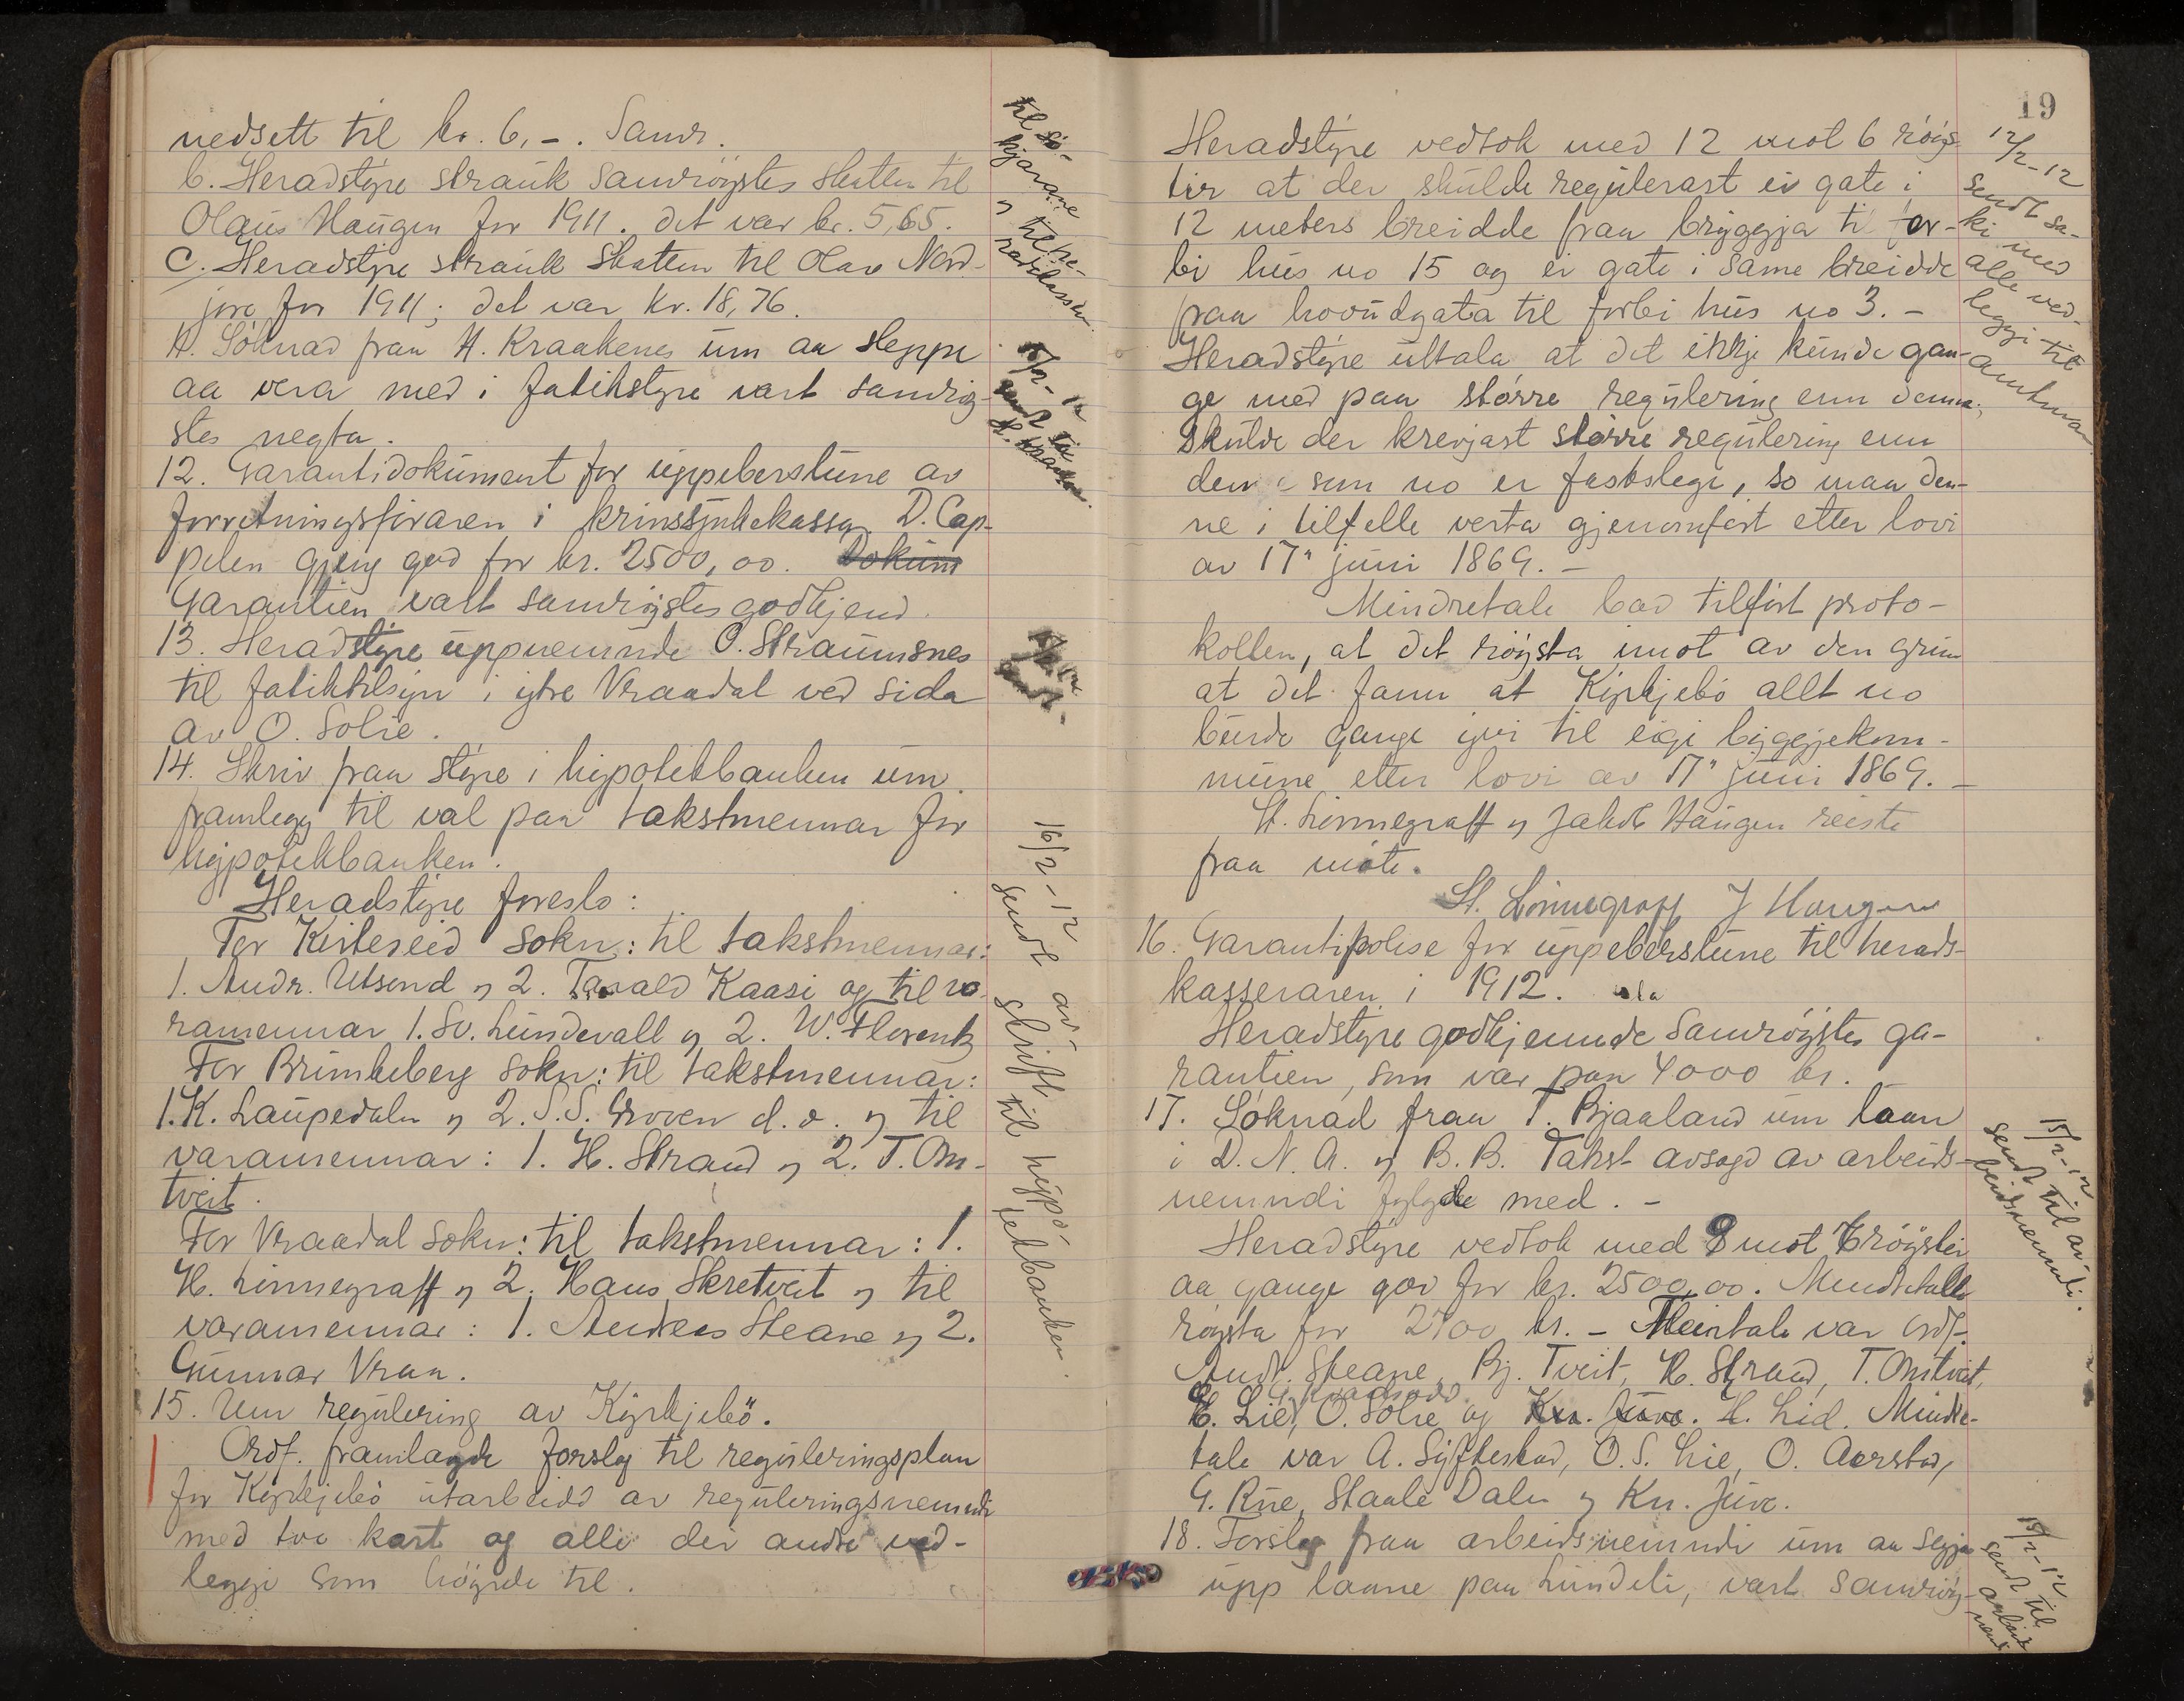 nedsett til kr. 6,-. Samr.
b. Heradstyre strauk samrøystes skatten til
Olaus Haugen for 1911. det var kr. 5,65.
c. Heradstyre strauk skatten til Olav Nord-
jore for 1911; det var kr. 18,76.
Søknad fraa H. Kraakenes um aa sleppe
aa vera med i fatikstyre vart samrøy-
stes negta.
12. Garantidokument for uppeberslune av
forretningsføraren i krinssjukekassa, D. Cap-
pelen gjeng god for kr. 2500,00. Dokum
Garantien vart samrøystes godkjend.
13. Heradstyre uppnemnde O. Straumsnes
til fatiktilsyn i ytre Vraadal ved sida
av O. Solie.
14. Skriv fraa styre i hypotekbanken um
framlegg til val paa takstmennar for
hypotekbanken.
Heradstyre foreslo:
For Kviteseid sokn: til takstmennar:
1. Andr. Utsond og 2. Tarald Kaasi og til va-
ramennar 1. Sv. Lundevall og 2. W. Florentz
For Brunkeberg sokn: til takstmennar:
1. K. Laupedalen og 2. S. S. Groven d. e. og til
varamennar: 1. H. Strand og 2. T. Om-
tveit.
For Vraadal sokn: til takstmennar: 1.
H. Linnegraff og 2. Hans Skretveit og til
varamennar: 1. Andreas Steane og 2.
Gunnar Vraa.
15. Um regulering av Kyrkjebø.
Ordf. framlagde forslag til reguleringsplan
for Kyrkjebø utarbeidd av reguleringsnemndi
med tvo kart og alle dei andre ved-
leggi som høyrde til.
til sø-
kjarane
og til he-
radskassar.
15/2-12
sendt til
H. Kraaken.
16/2-12 sendt av-
skrift til hypo-
tekbanken.
19
Heradstyre vedtok med 12 mot 6 røys-
tir at der skulde regulerast ei gate i
12 meters breidde fraa bryggja til for-
bi hus no 15 og ei gate i same breidde
fraa hovudgata til forbi hus no 3. -
Heradstyre uttala at det ikkje kunde gan-
ge med paa større regulering enn denne.
Skulde der krevjast større regulering enn
den som no er fastslege, so maa den-
ne i tilfelle verta gjenomført etter lovi
av 17" juni 1869. -
Mindretale bad tilført proto-
kollen, at det røysta imot av den grunn
at det fann at Kyrkjebø allt no
burde gange yvi til eigi byggjekom-
mune etter lovi av 17" juni 1869. -
H. Linnegraff og Jakob Haugen reiste
fraa møte.
H. Linnegraff J Haugen
16. Garantipolise for uppeberslune til herads-
kasseraren i 1912.
Heradstyre godkjennde samrøystes ga-
rantien, som var paa 4000 kr. -
17. Søknad fraa T. Bjaaland um laan
i D. N. A. og B. B. Takst avsagd av arbeids-
nemndi fylgde med. -
Heradstyre vedtok med 8 mot 6 røystir
aa gange god for kr. 2500,00. Mindretalle
røysta for 2700 kr. - Fleirtale var ordf.
Andr. Steane, Bj. Tveit, H. Strand, T. Omtveit,
E. Lid, O. Solie og Kn. Juve. H. Lid. Mindre-
tale var A. Syftestad, O. S. Lie, O. Aarstad,
G. Rue, Staale Dalen og Kn. Juve.
18. Forslag fraa arbeidsnemndi um aa segja
upp laane paa Lundeli, vart samrøy-
12/2-12
sendt sa-
ki med
alle ved-
leggi til
amtman
15/2-12
sendt til ar-
beidsnemndi.
15/2-12
sendt til
arbeids
nemnd